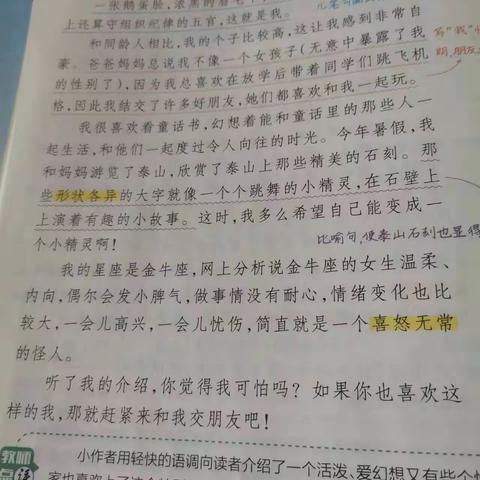 一张鹅蛋脸,浓黑的眉毛下,
上还算守组织纪律的五官,这就是我。
和同龄人相比,我的个子比较高,这让我感到非常自
豪。爸爸妈妈总说我不像一个女孩子(无意中暴露了我
的性别了),因为我总喜欢在放学后带着同学们跳飞机
格,因此我结交了许多好朋友,她们都喜欢和我一起玩。
我很喜欢看童话书,幻想着能和童话里的那些人一
起生活,和他们一起度过令人向往的时光。今年暑假,我
和妈妈游览了泰山,欣赏了泰山上那些精美的石刻。那
些形状各异的大字就像一个个跳舞的小精灵,在石壁上
上演着有趣的小故事。这时,我多么希望自己能变成一
个小精灵啊!
比喻句,使泰山石刻也显得
我的星座是金牛座,网上分析说金牛座的女生温柔、
内向,偶尔会发小脾气,做事情没有耐心,情绪变化也比
较大,一会儿高兴,一会儿忧伤,简直就是一个喜怒无常
的怪人。
听了我的介绍,你觉得我可怕吗?如果你也喜欢这
样的我,那就赶紧来和我交朋友吧!
教师
点评
小作者用轻快的语调向读者介绍了一个活泼、爱幻想又有些个